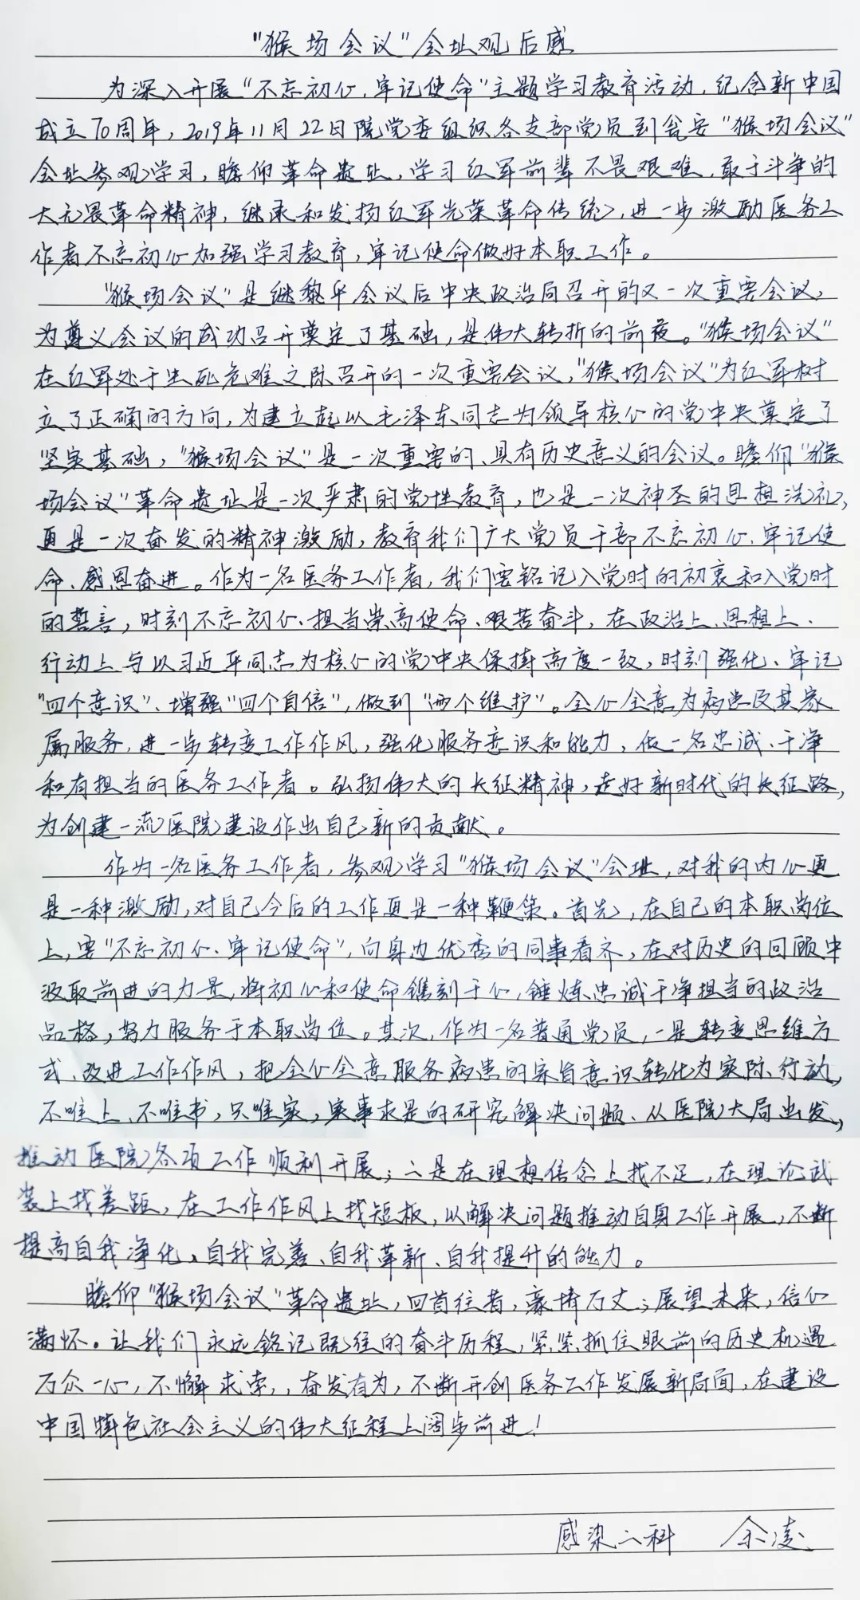 “猴场会议”会址观后感
为深入开展“不忘初心,牢记使命”主题学习教育活动,纪念新中国
成立70周年,2019年11月22日院党委组织各支部党员到瓮安“猴场会议”
会址参观学习,瞻仰革命遗址,学习红军前辈不畏艰难、敢于斗争的
大无畏革命精神,继承和发扬红军光荣革命传统,进一步激励医务工
作者不忘初心加强学习教育,牢记使命做好本职工作。
“猴场会议”是继黎平会议后中央政治局召开的又一次重要会议,
为遵义会议的成功召开奠定了基础,是伟大转折的前夜。“猴场会议”
在红军处于生死危难之际召开的一次重要会议,“猴场会议”为红军树
立了正确的方向,为建立起以毛泽东同志为领导核心的党中央奠定了
坚实基础,“猴场会议”是一次重要的、具有历史意义的会议。瞻仰“猴
场会议”革命遗址是一次严肃的党性教育,也是一次神圣的思想洗礼,
更是一次奋发的精神激励,教育我们广大党员干部不忘初心、牢记使
命、感恩奋进。作为一名医务工作者,我们要铭记入党时的初衷和入党时
的誓言,时刻不忘初心、担当崇高使命、艰苦奋斗,在政治上、思想上、
行动上与以习近平同志为核心的党中央保持高度一致,时刻强化、牢记
“四个意识”、增强“四个自信”,做到“两个维护”。全心全意为病患及其家
属服务,进一步转变工作作风,强化服务意识和能力,做一名忠诚、干净
和有担当的医务工作者。弘扬伟大的长征精神,走好新时代的长征路,
为创建一流医院建设作出自己新的贡献。
作为一名医务工作者,参观学习“猴场会议”会址,对我的内心更
是一种激励,对自己今后的工作更是一种鞭策。首先,在自己的本职岗位
上,要“不忘初心、牢记使命”,向身边优秀的同事看齐,在对历史的回顾中
汲取前进的力量,将初心和使命镌刻于心,锤炼忠诚干净担当的政治
品格,努力服务于本职岗位。其次,作为一名普通党员,一是转变思维方
式、改进工作作风,把全心全意服务病患的宗旨意识转化为实际行动,
不唯上、不唯书,只唯实,实事求是的研究解决问题、从医院大局出发,
推动医院各项工作顺利开展;二是在理想信念上找不足,在理论武
装上找差距,在工作作风上找短板,以解决问题推动自身工作开展,不断
提高自我净化、自我完善、自我革新、自我提升的能力。
瞻仰“猴场会议”革命遗址,回首往昔,豪情万丈;展望未来,信心
满怀。让我们永远铭记既往的奋斗历程,紧紧抓住眼前的历史机遇
万众一心,不懈求索,奋发有为,不断开创医务工作发展新局面,在建设
中国特色社会主义的伟大征程上阔步前进!
感染二科 余凌